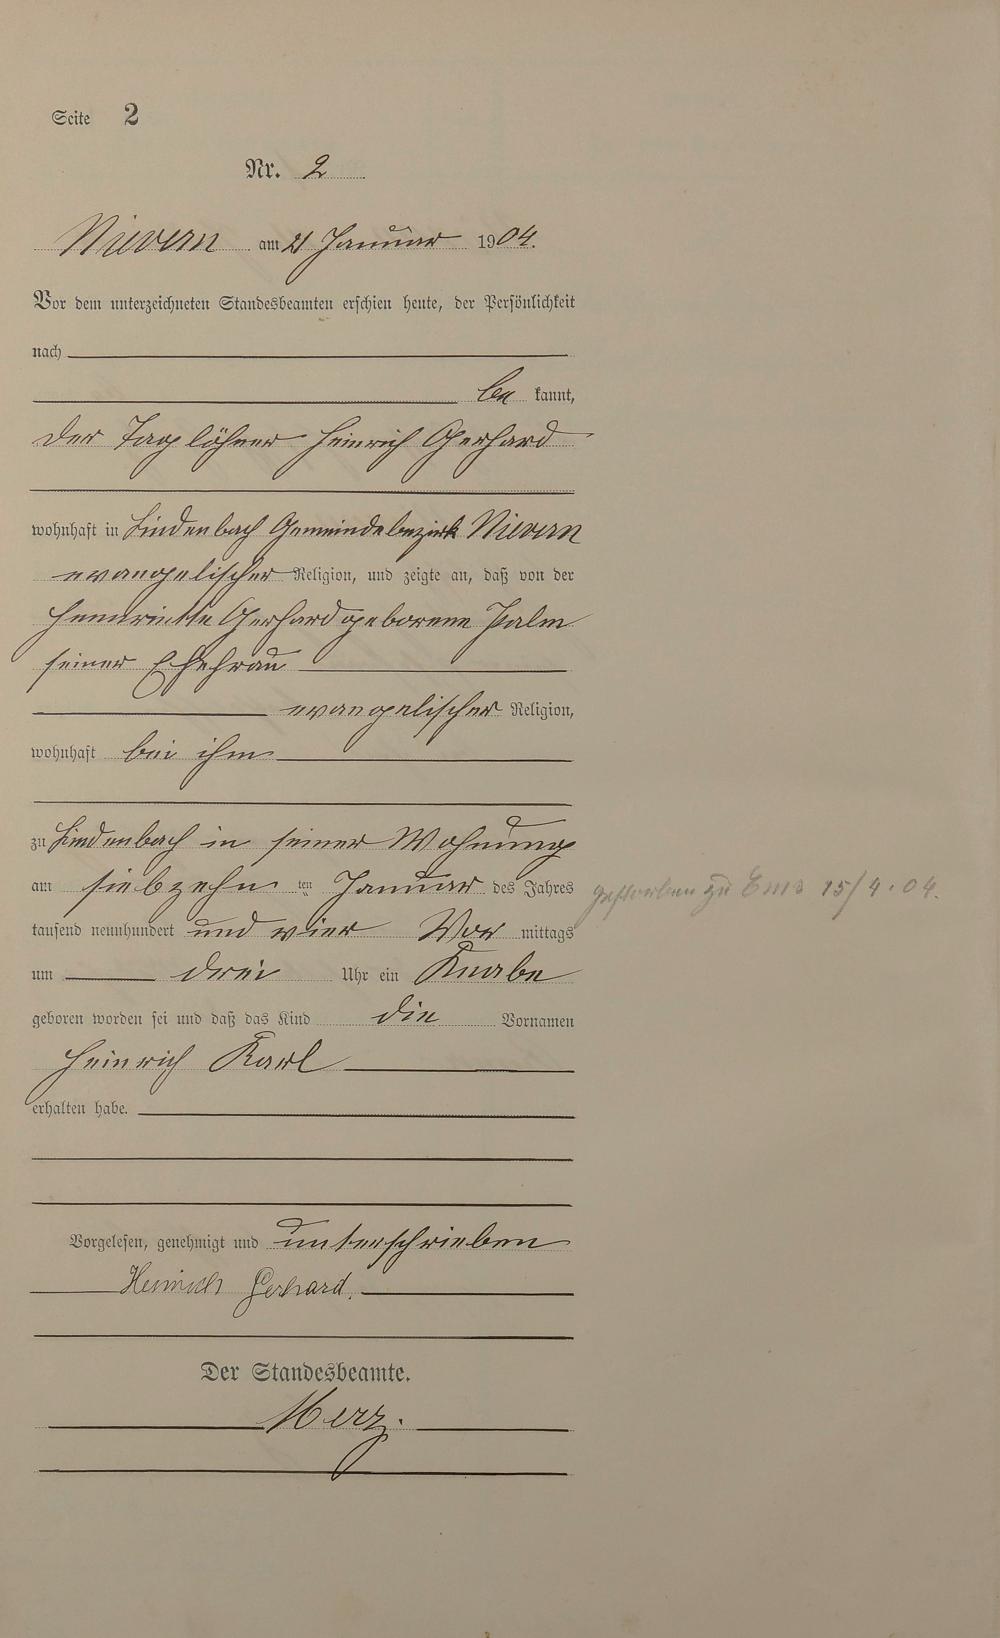 Seite 2
Nr. 2
Nievern am 21 Januar 1904.
Vor dem unterzeichneten Standesbeamten erschien heute, der Persönlichkeit
nach
be kannt,
der Taglöhner Heinrich Gerhard
wohnhaft in Lindenbach Gemeindebezirk Nievern
evangelischer Religion, und zeigte an, daß von der
Hennriette Gerhard geborene Palm
seiner Ehefrau
evangelischer Religion,
wohnhaft bei ihm
zu Lindenbach in seiner Wohnung
am siebzehn ten Januar des Jahres
tausend neunhundert und vier Vor mittags
um drei Uhr ein Knabe
geboren worden sei und daß das Kind die Vornamen
Heinrich Karl
erhalten habe.
Vorgelesen, genehmigt und unterschrieben
Heinrich Gerhard.
Der Standesbeamte.
Merz.
gestorben zu Ems 15/4.04.